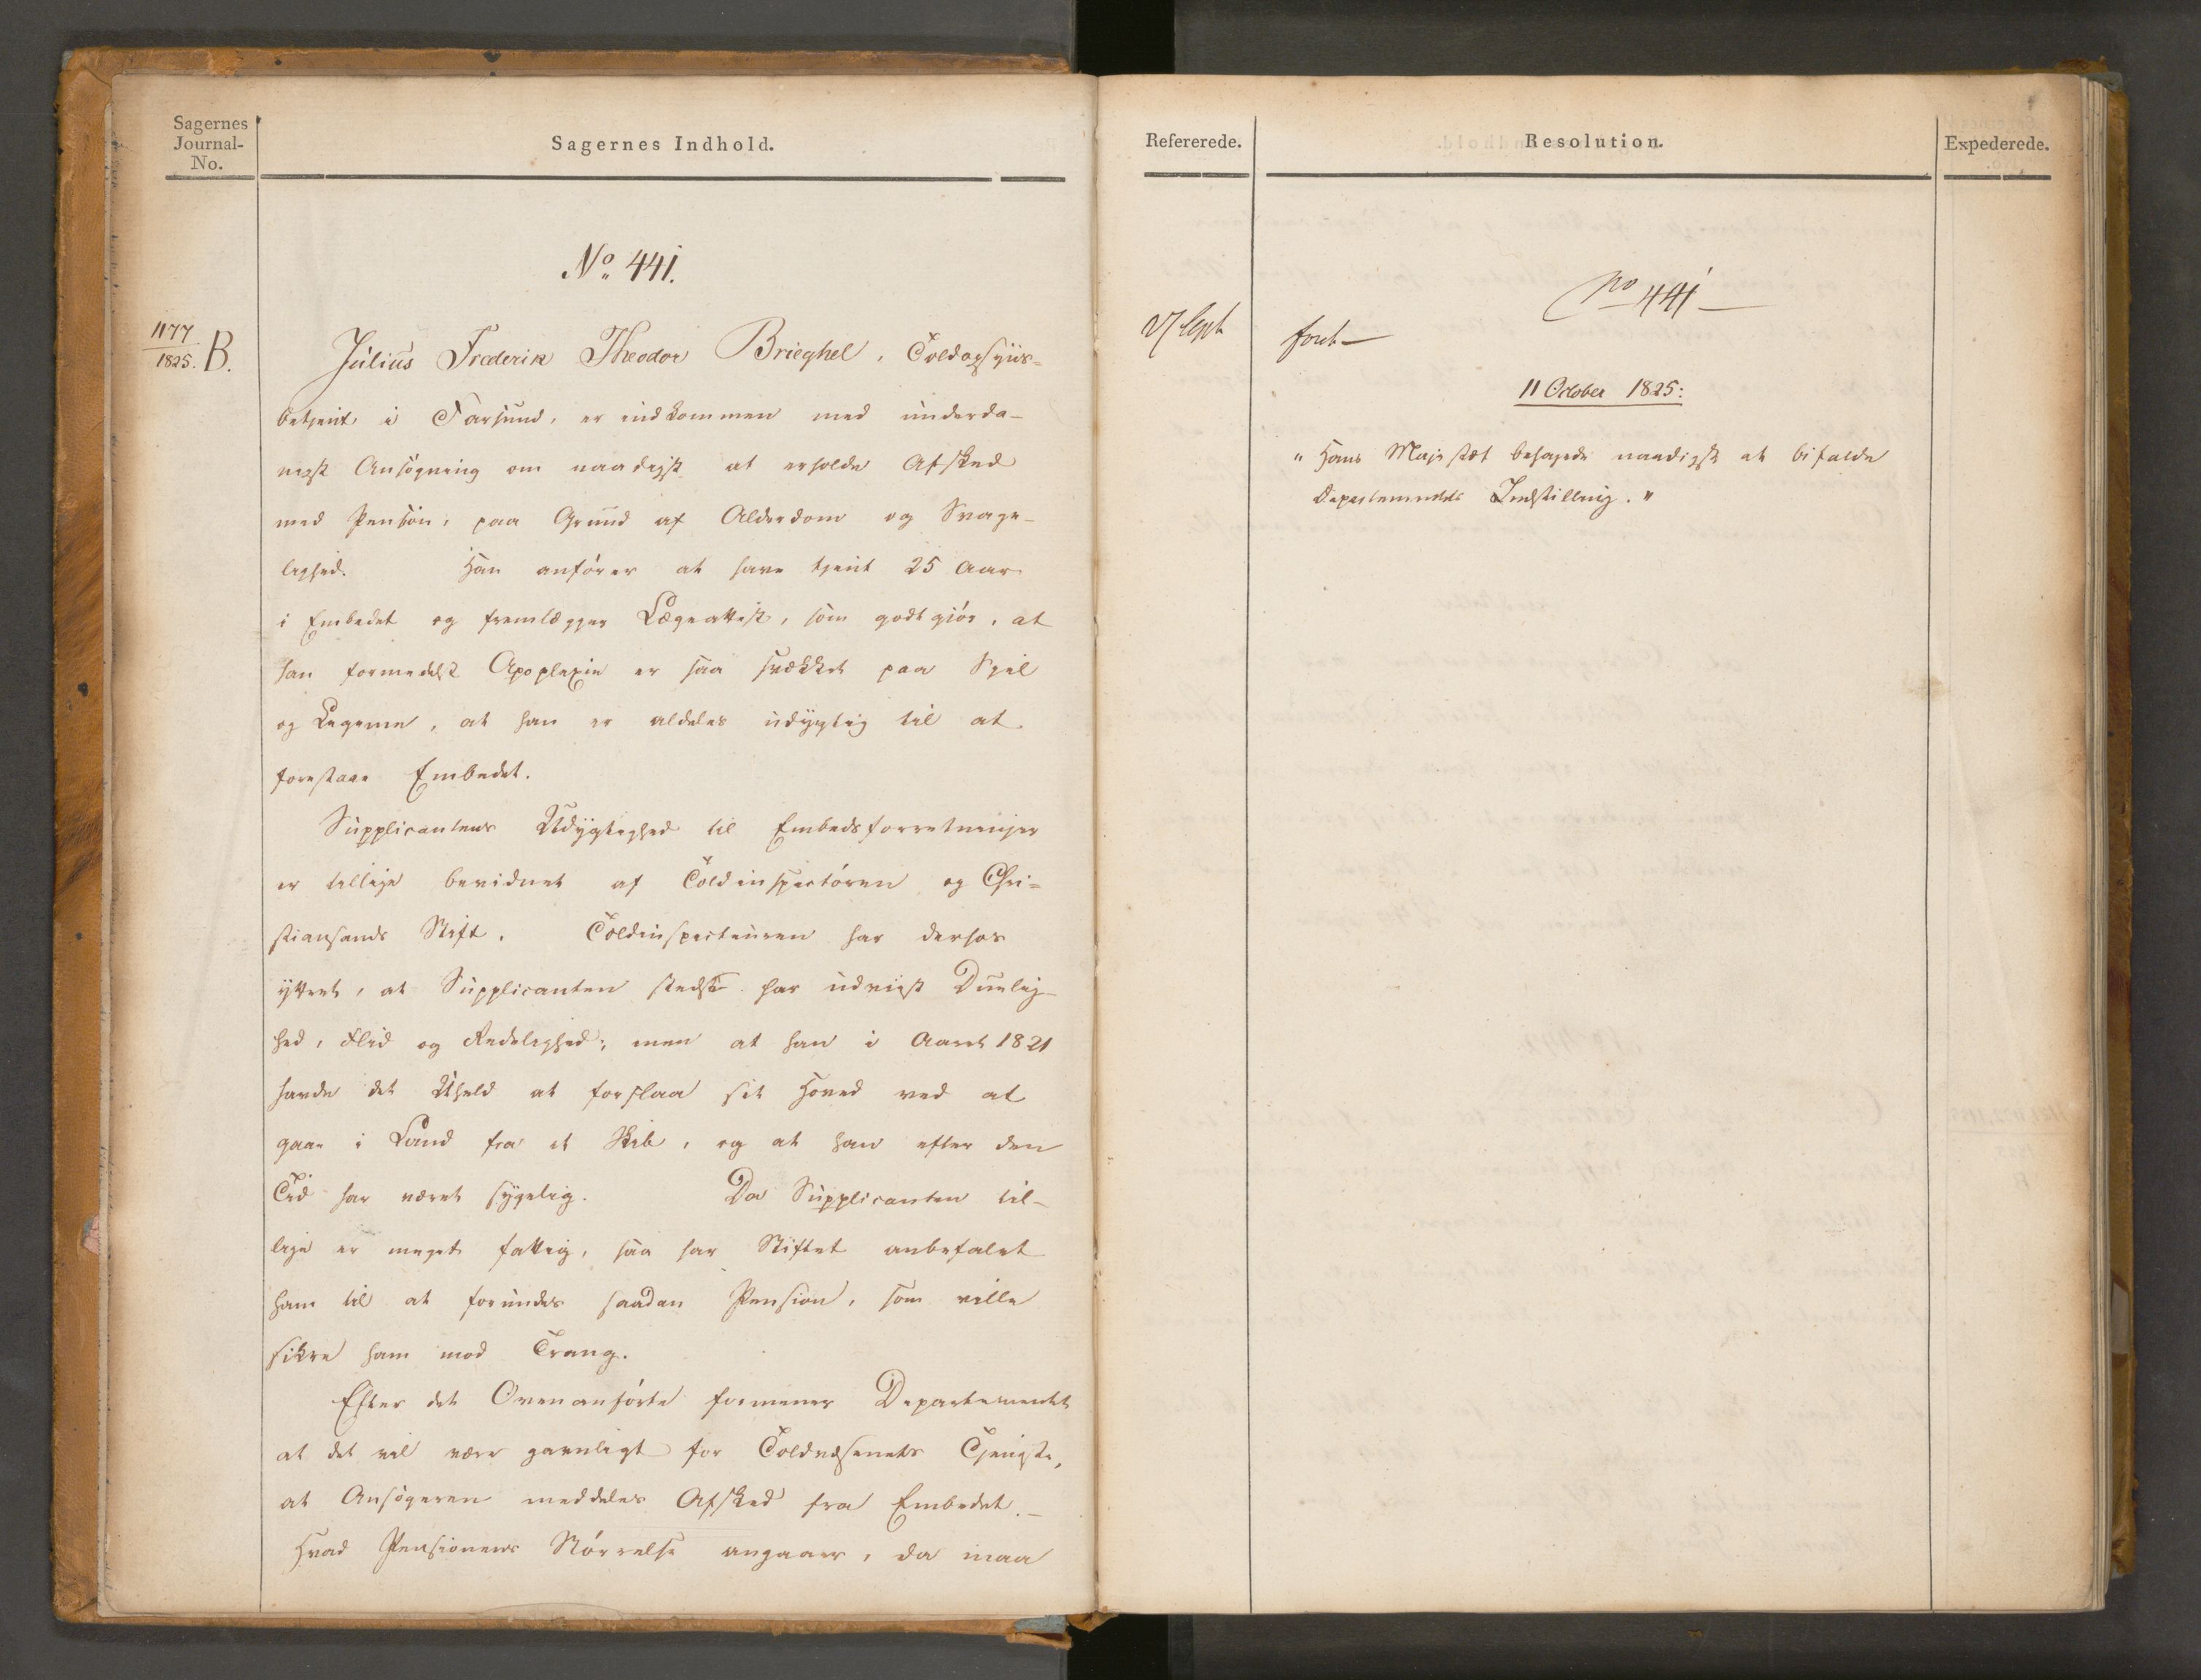 Sagernes
Journal-
No.
Sagernes Indhold.
No. 441.
1177
1825. B.
Julius Frederik Theodor Brieghel, Toldopsyns-
betjent i Farsund, er indkommen med underda-
nigst Ansøgning om naadigst at erholde Afsked
med Pension, paa Grund af Alderdom og Svage-
lighed. Han anfører at have tjent 25 Aar
i Embedet og fremlægger Lægeattest, som godtgiør, at
han formedelst Apoplexie er saa svækket paa Sjel
og Legeme, at han er aldeles udygtig til at
forestaae Embedet.
Supplicantens Udygtighed til Embedsforretninger
er tillige bevidnet af Toldinspectøren og Chri-
stiansands Stift. Toldinspecteuren har derhos
yttret, at Supplicanten stedse har udviist Duelig-
hed, Flid og Redelighed; men at han i Aaret 1821
havde det Uheld at forslaa sit Hoved ved at
gaae i Land fra et Skib, og at han efter den
Tid har været sygelig. Da Supplicanten til-
lige er meget fattig, saa har Stiftet anbefalet
ham til at forundes saadan Pension, som ville
sikre ham mod Trang.
Efter det Ovenanførte formener Departementet
at det vil være gavnligt for Toldvæsenets Tjeneste,
at Ansøgeren meddeles Afsked fra Embedet.-
Hvad Pensionens Størrelse angaaer, da maa
Refererede.
Resolution.
Expederede.
No 441
Sept
11 October 1825:
"Hans Majestæt behagede naadigst at bifalde
Departementets Indstilling."